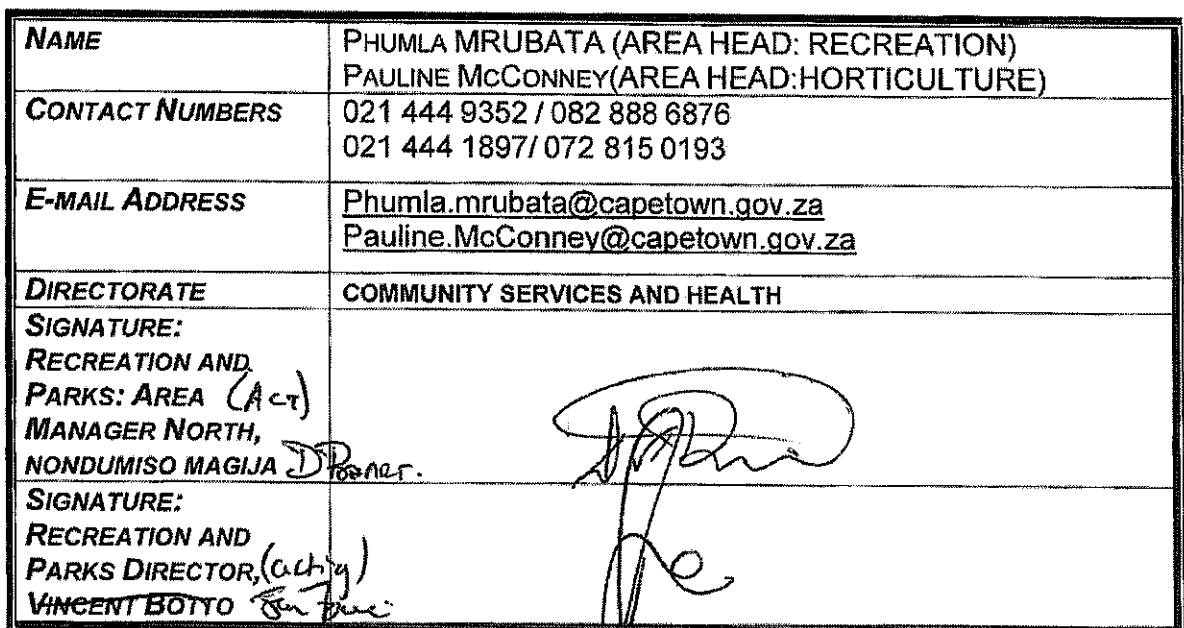 NAME
PHUMLA MRUBATA (AREA HEAD: RECREATION)
PAULINE MCCONNEY(AREA HEAD:HORTICULTURE)
CONTACT NUMBERS
021 444 9352 / 082 888 6876
021 444 1897/ 072 815 0193
E-MAIL ADDRESS
Phumla.mrubata@capetown.gov.za
Pauline.McConney@capetown.gov.za
DIRECTORATE
COMMUNITY SERVICES AND HEALTH
SIGNATURE:
RECREATION AND
PARKS: AREA (Act)
MANAGER NORTH,
NONDUMISO MAGIJA
SIGNATURE:
RECREATION AND
PARKS DIRECTOR, (acting)
VINCENT BOTTO